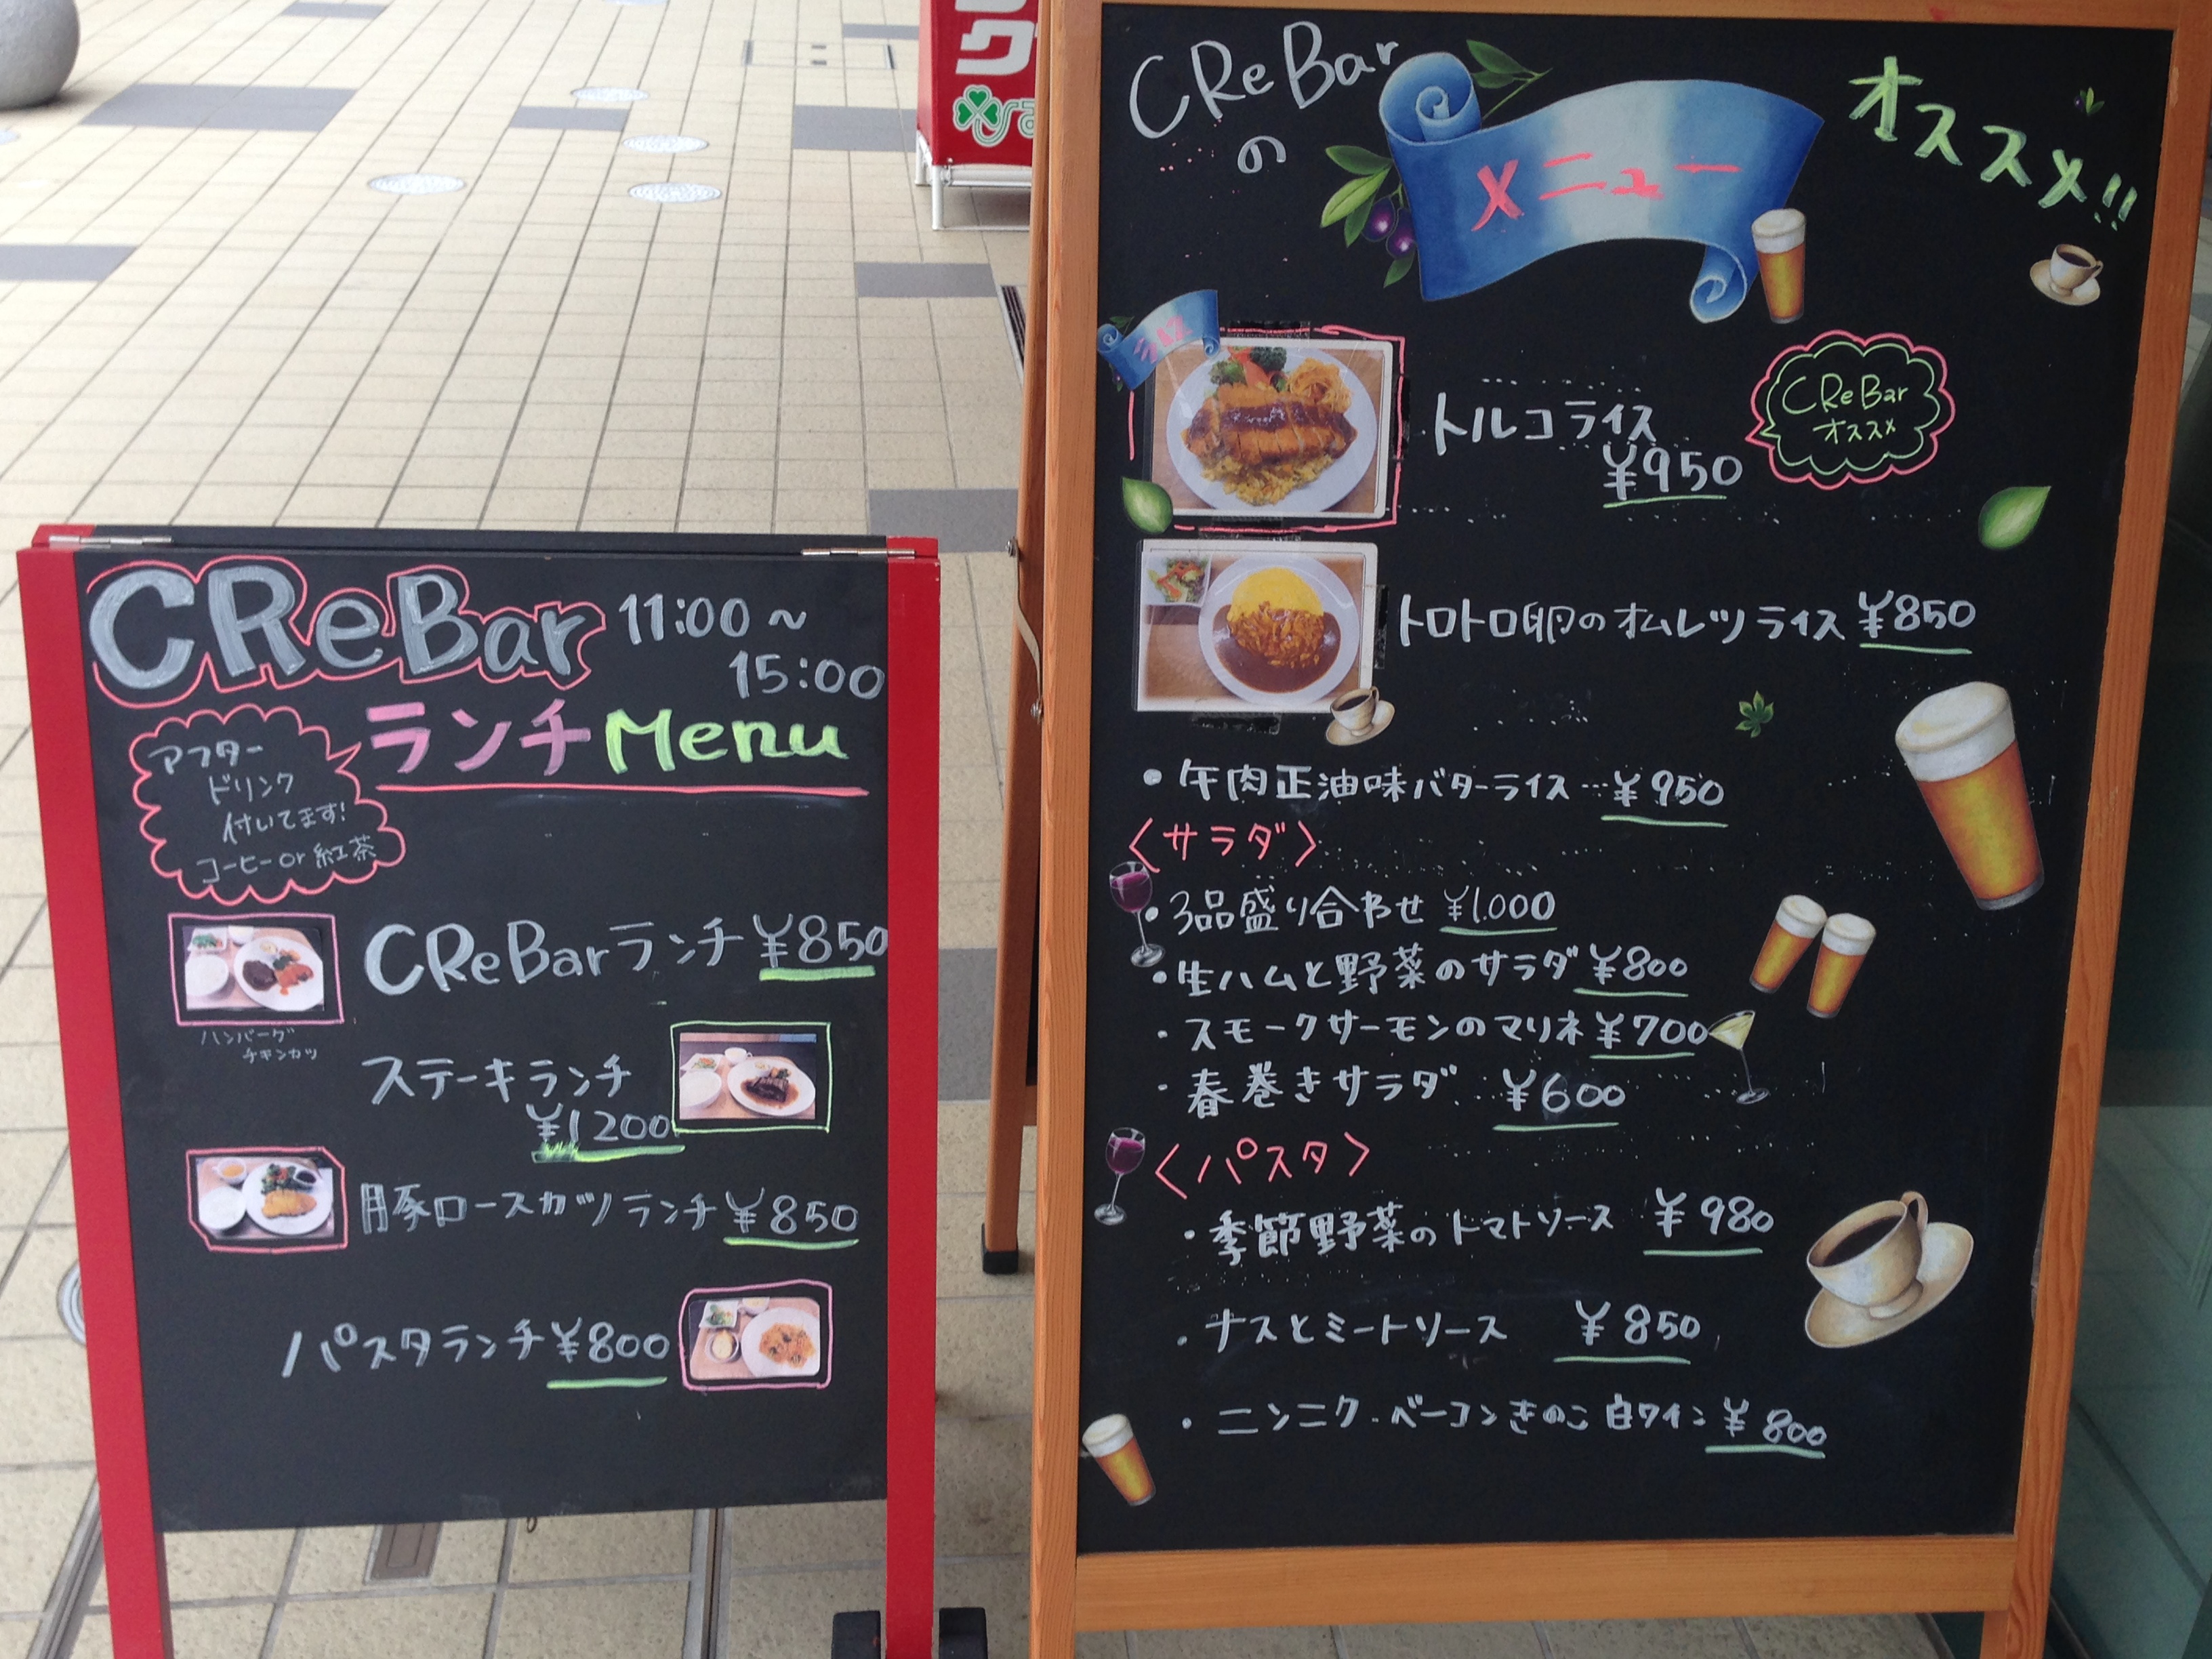 CReBar 11:00〜
15:00
ランチMenu
アフター
ドリンク
付いてます!
コーヒーor紅茶
CReBarランチ ¥850
ハンバーグ
チキンカツ
ステーキランチ
¥1200
豚ロースカツランチ ¥850
パスタランチ ¥800
CReBar
の
メニュー
オススメ!!
トルコライス
¥950
CReBar
オススメ
トロトロ卵のオムレツライス ¥850
・牛肉正油味バターライス…¥950
〈サラダ〉
・3品盛り合わせ ¥1.000
・生ハムと野菜のサラダ ¥800
・スモークサーモンのマリネ ¥700
・春巻きサラダ… ¥600
〈パスタ〉
・季節野菜のトマトソース ¥980
・ナスとミートソース ¥850
・ニンニク・ベーコンきのこ白ワイン ¥800